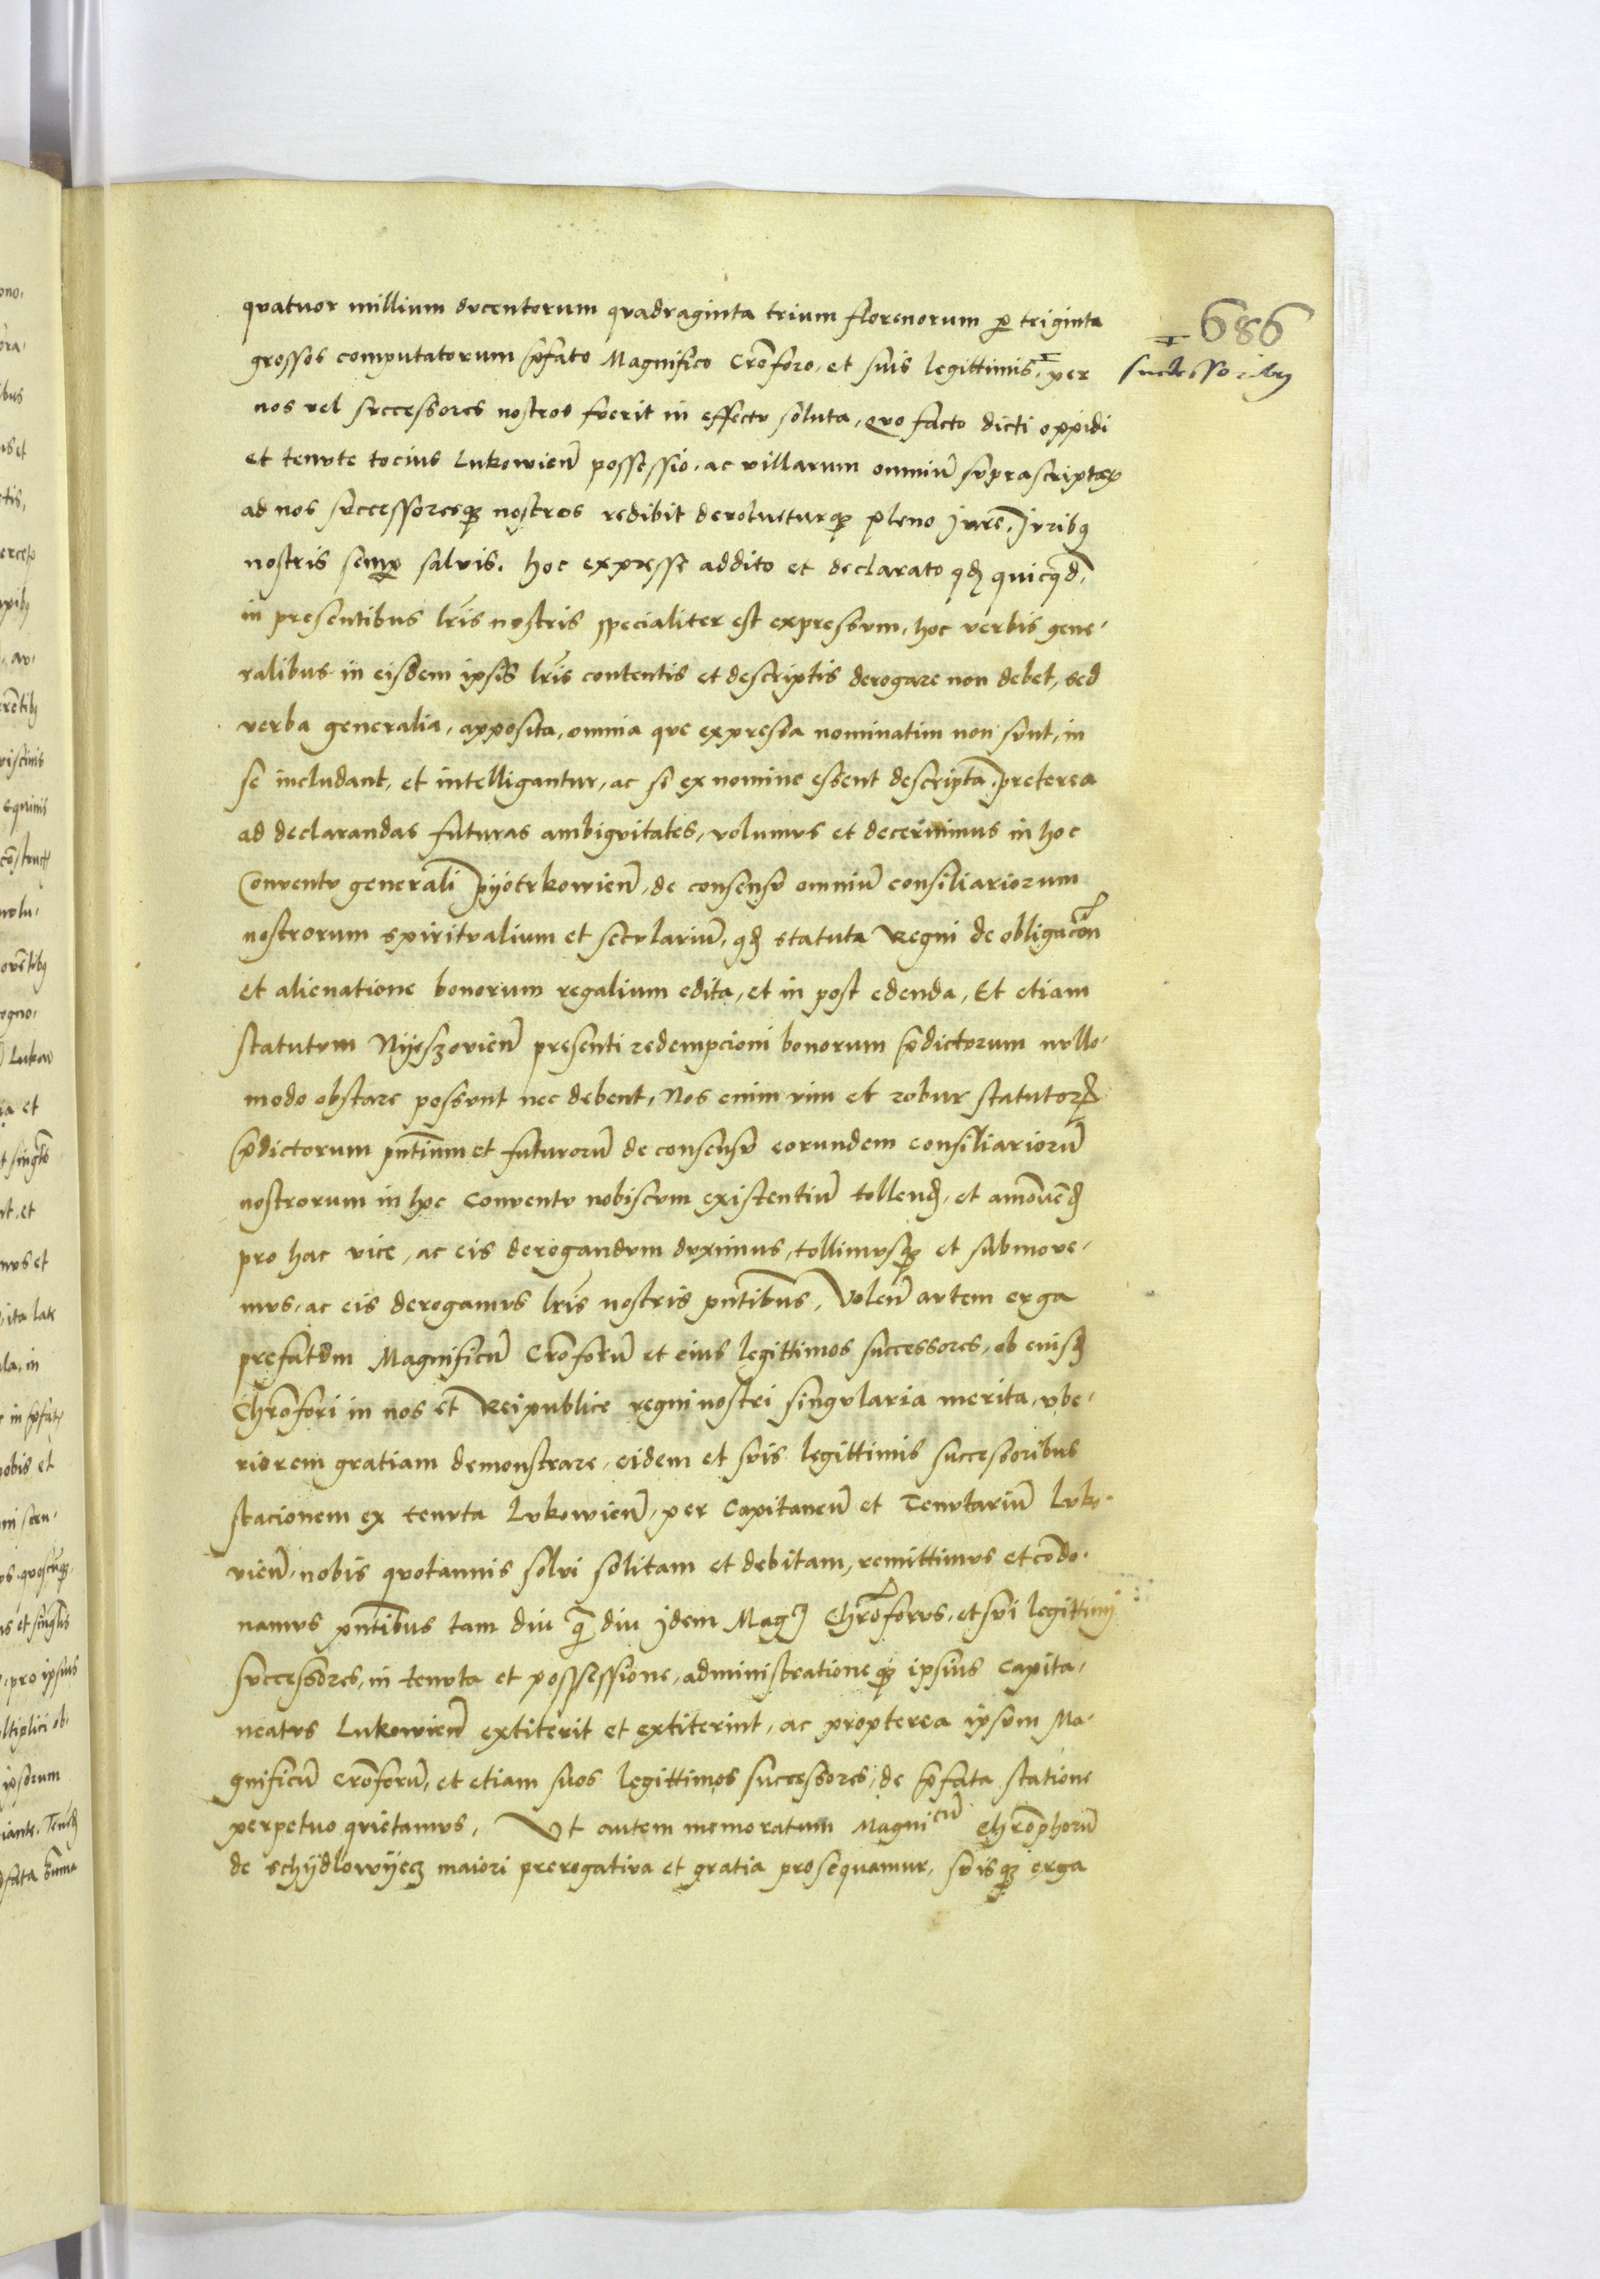 686
quatuor millium ducentorum quadraginta trium florenorum ꝑ triginta
grossos computatorum p̄fato Magnifico Crōforo, et suis legittimis, per
successoribꝫ
nos vel successores nostros fuerit in effectu soluta, quo facto dicti oppidi
et tenute tocius Lukowien̄ possessio, ac villarum omniū suprascriptaꝝ
ad nos successoresqꝫ nostros redibit devolueturqꝫ pleno jure, juribꝫ
nostris semꝑ salvis. hoc expresse addito et declarato qd̄ quicqd̄,
in presentibus lr̄is nostris specialiter est expressum, hoc verbis gene,
ralibus in eisdem ipsis lr̄is contentis et descriptis derogare non debet, sed
verba generalia, apposita, omnia que expressa nominatim non sunt, in
se includant, et intelligantur, ac si ex nomine essent descripta. preterea
ad declarandas futuras ambiguitates, volumus et decernimus in hoc
Conventu generali pyotrkowien̄, de consensu omniū consiliariorum
nostrorum spiritualium et seculariū, qd̄ statuta Regni de obligacōn
et alienatione bonorum regalium edita, et in post edenda, Et etiam
statutum Nyeszovien̄ presenti redempcioni bonorum p̄dictorum nullo,
modo obstare possunt nec debent, Nos enim vim et robur statutoꝝ
p̄dictorum pn̄tium et futurorū de consensu eorundem consiliariorū
nostrorum in hoc Conventu nobiscum existentiū tollend̄, et amovēd̄
pro hac vice, ac eis derogandum duximus, tollimusqꝫ et submove,
mus, ac eis derogamus lr̄is nostris pn̄tibus, Volen̄ autem erga
prefatum Magnificū Crōforū et eius legittimos successores, ob euisd̄
Chrōfori in nos et Reipublice regni nostri singularia merita, ube,
riorem gratiam demonstrare, eidem et suis legittimis successoribus
stacionem ex tenuta Lukowien̄, per Capitaneū et Tenutariū Luko,
vien̄, nobis quotannis solvi solitam et debitam, remittimus et cōdo,
namus pn̄tibus tam diu q̄ diu jdem Magcꝫ Chrōforus, et sui legittimj
successores, in tenuta et possessione, administrationeqꝫ ipsius Capita,
neatus Lukowien̄ extiterit et extiterint, ac propterea ipsum Ma,
gnificū Crōforū, et etiam suos legittimos successores, de p̄fata statione
perpetuo quietamus, Ut autem memoratum Magnicū Chrōphorū
de Schydlowyecz maiori prerogativa et gratia prosequamur, suisqꝫ erga